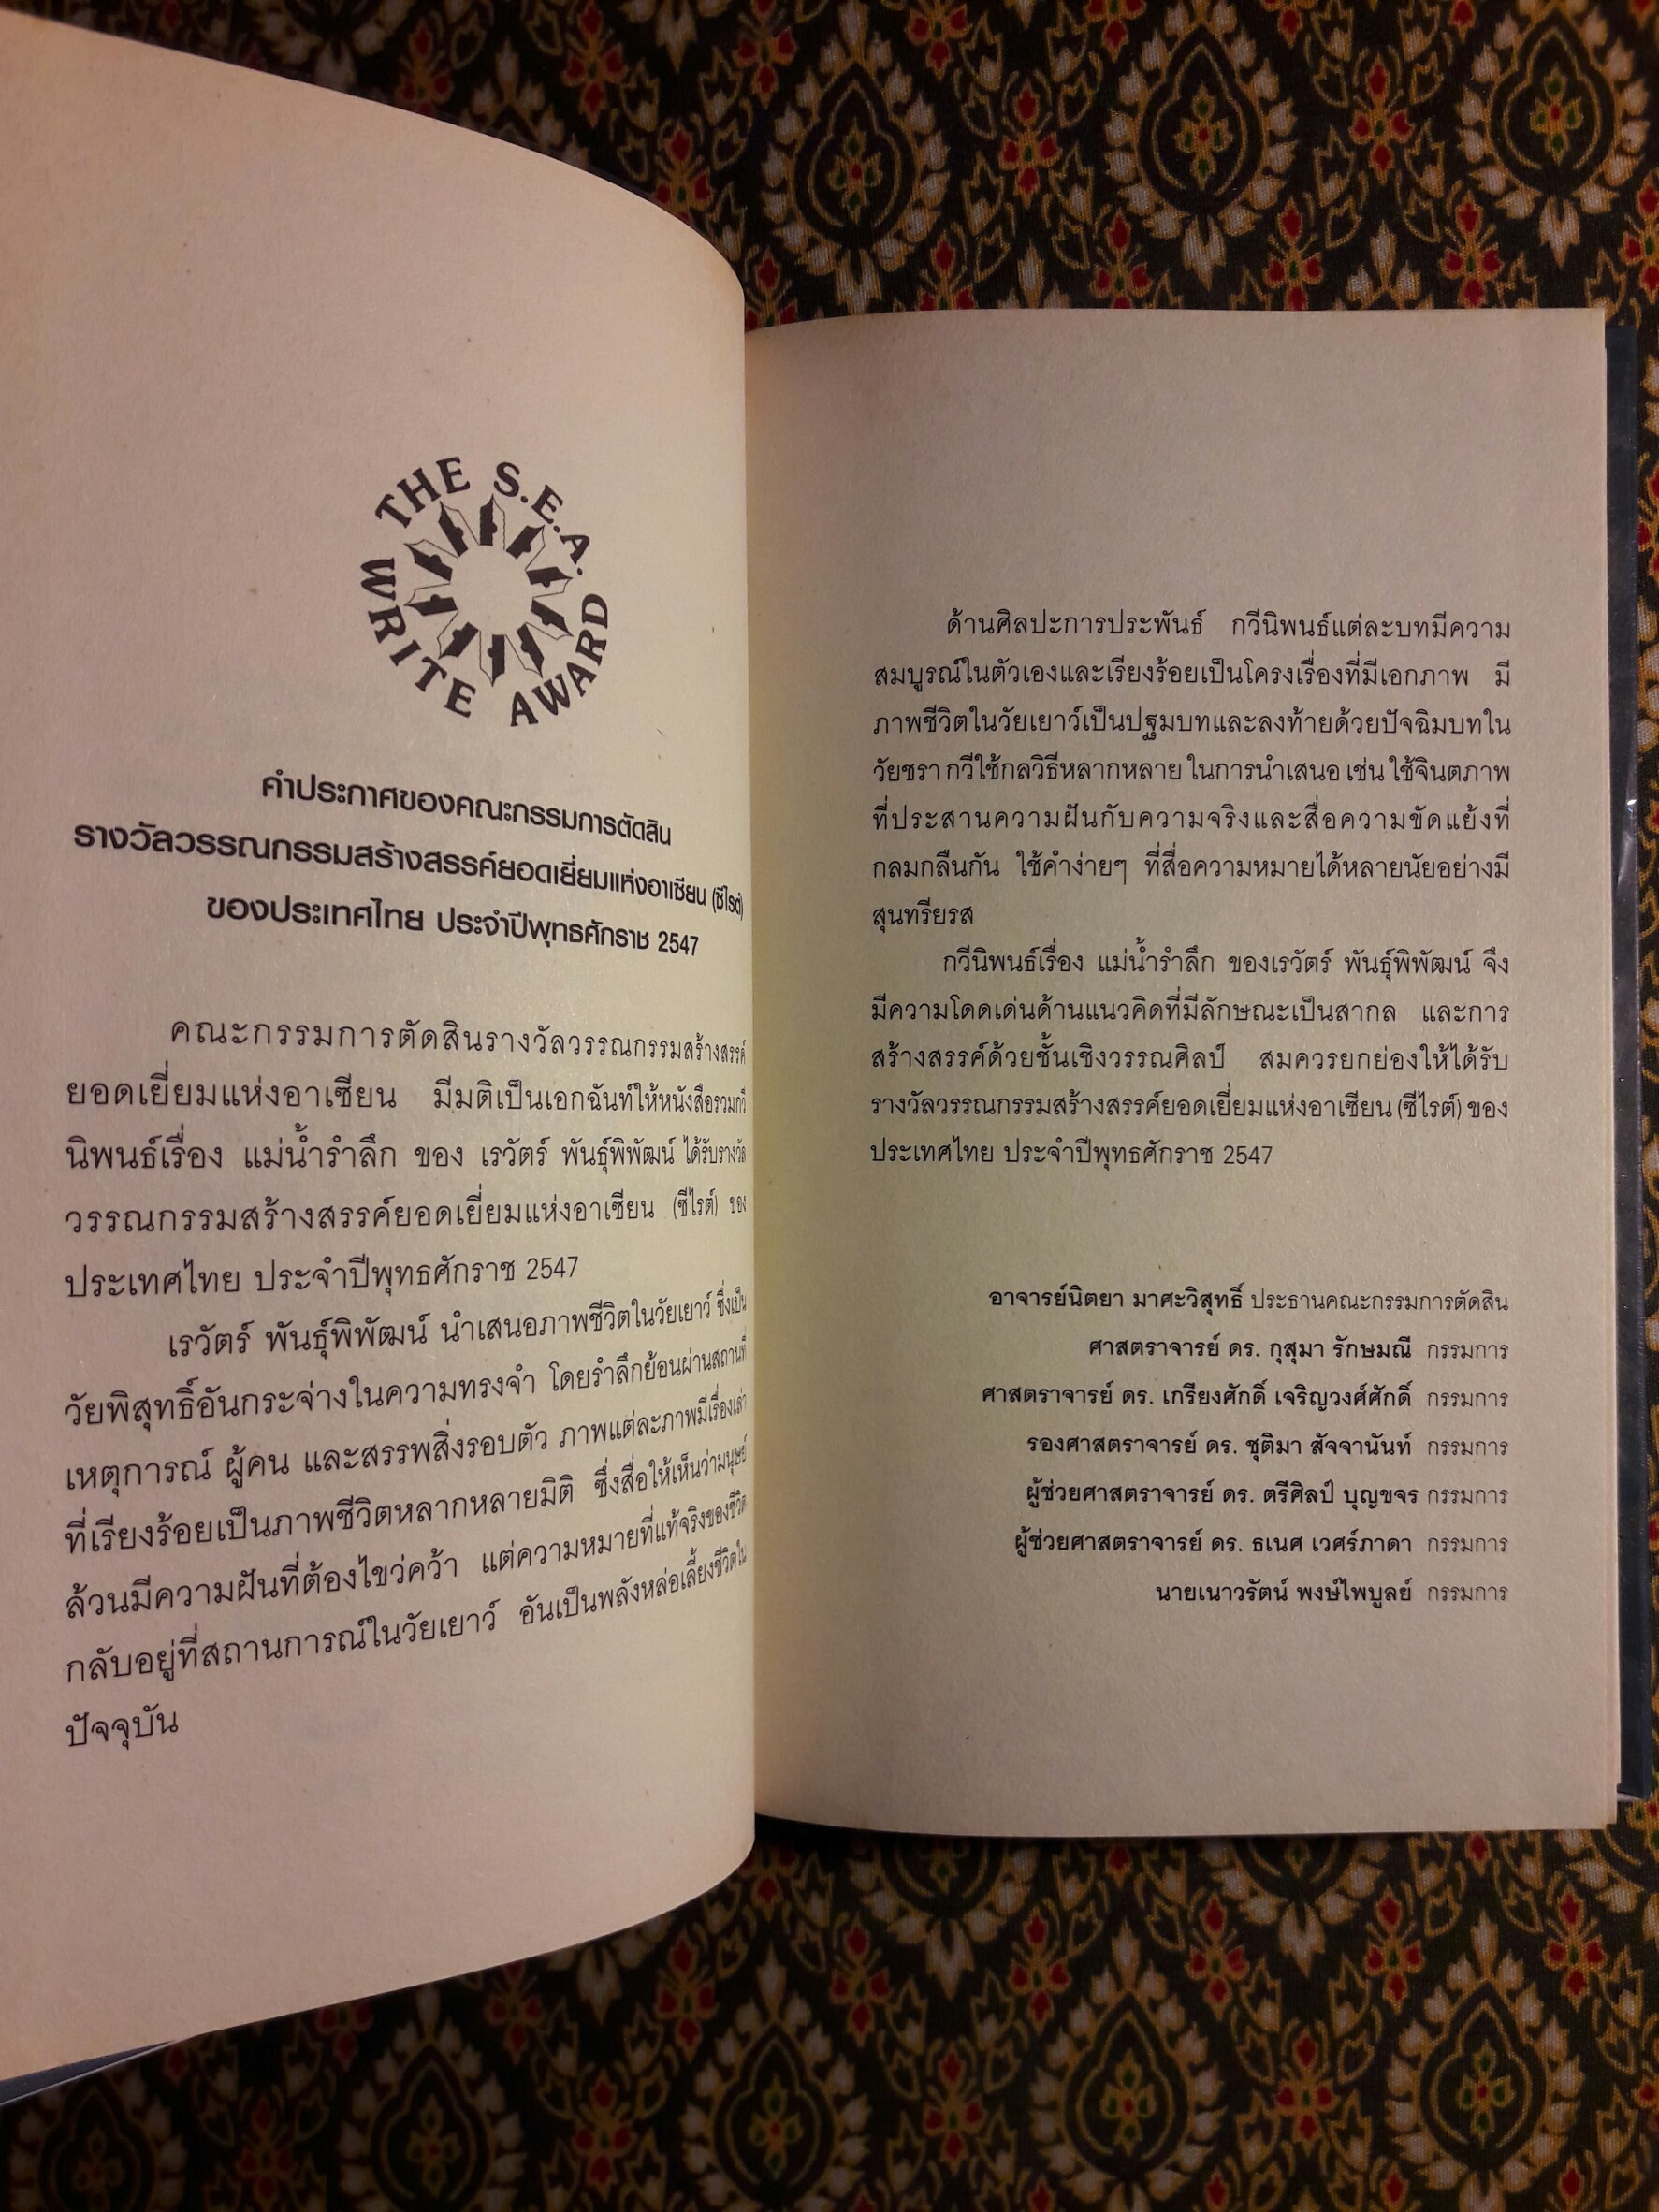 THE S.E.A. WRITE AWARD
คำประกาศของคณะกรรมการตัดสิน
รางวัลวรรณกรรมสร้างสรรค์ยอดเยี่ยมแห่งอาเซียน (ซีไรต์)
ของประเทศไทย ประจำปีพุทธศักราช 2547
คณะกรรมการตัดสินรางวัลวรรณกรรมสร้างสรรค์
ยอดเยี่ยมแห่งอาเซียน มีมติเป็นเอกฉันท์ให้หนังสือรวมกวี
นิพนธ์เรื่อง แม่น้ำรำลึก ของ เรวัตร์ พันธุ์พิพัฒน์ ได้รับรางวัล
วรรณกรรมสร้างสรรค์ยอดเยี่ยมแห่งอาเซียน (ซีไรต์) ของ
ประเทศไทย ประจำปีพุทธศักราช 2547
เรวัตร์ พันธุ์พิพัฒน์ นำเสนอภาพชีวิตในวัยเยาว์ ซึ่งเป็น
วัยพิสุทธิ์อันกระจ่างในความทรงจำ โดยรำลึกย้อนผ่านสถานที่
เหตุการณ์ ผู้คน และสรรพสิ่งรอบตัว ภาพแต่ละภาพมีเรื่องเล่า
ที่เรียงร้อยเป็นภาพชีวิตหลากหลายมิติ ซึ่งสื่อให้เห็นว่ามนุษย์
ล้วนมีความฝันที่ต้องไขว่คว้า แต่ความหมายที่แท้จริงของชีวิต
กลับอยู่ที่สถานการณ์ในวัยเยาว์ อันเป็นพลังหล่อเลี้ยงชีวิตใน
ปัจจุบัน
ด้านศิลปะการประพันธ์ กวีนิพนธ์แต่ละบทมีความ
สมบูรณ์ในตัวเองและเรียงร้อยเป็นโครงเรื่องที่มีเอกภาพ มี
ภาพชีวิตในวัยเยาว์เป็นปฐมบทและลงท้ายด้วยปัจฉิมบทใน
วัยชรา กวีใช้กลวิธีหลากหลาย ในการนำเสนอ เช่น ใช้จินตภาพ
ที่ประสานความฝันกับความจริงและสื่อความขัดแย้งที่
กลมกลืนกัน ใช้คำง่ายๆ ที่สื่อความหมายได้หลายนัยอย่างมี
สุนทรียรส
กวีนิพนธ์เรื่อง แม่น้ำรำลึก ของเรวัตร์ พันธุ์พิพัฒน์ จึง
มีความโดดเด่นด้านแนวคิดที่มีลักษณะเป็นสากล และการ
สร้างสรรค์ด้วยชั้นเชิงวรรณศิลป์ สมควรยกย่องให้ได้รับ
รางวัลวรรณกรรมสร้างสรรค์ยอดเยี่ยมแห่งอาเซียน (ซีไรต์) ของ
ประเทศไทย ประจำปีพุทธศักราช 2547
อาจารย์นิตยา มาศะวิสุทธิ์ ประธานคณะกรรมการตัดสิน
ศาสตราจารย์ ดร. กุสุมา รักษมณี กรรมการ
ศาสตราจารย์ ดร. เกรียงศักดิ์ เจริญวงศ์ศักดิ์ กรรมการ
รองศาสตราจารย์ ดร. ชุติมา สัจจานันท์ กรรมการ
ผู้ช่วยศาสตราจารย์ ดร. ตรีศิลป์ บุญขจร กรรมการ
ผู้ช่วยศาสตราจารย์ ดร. ธเนศ เวศร์ภาดา กรรมการ
นายเนาวรัตน์ พงษ์ไพบูลย์ กรรมการ